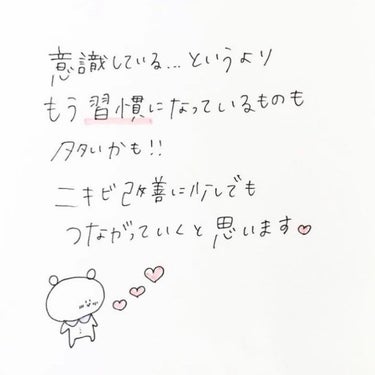 意識している...というより
もう習慣になっているものも
多いかも!!
ニキビ改善に少しでも
つながっていくと思います